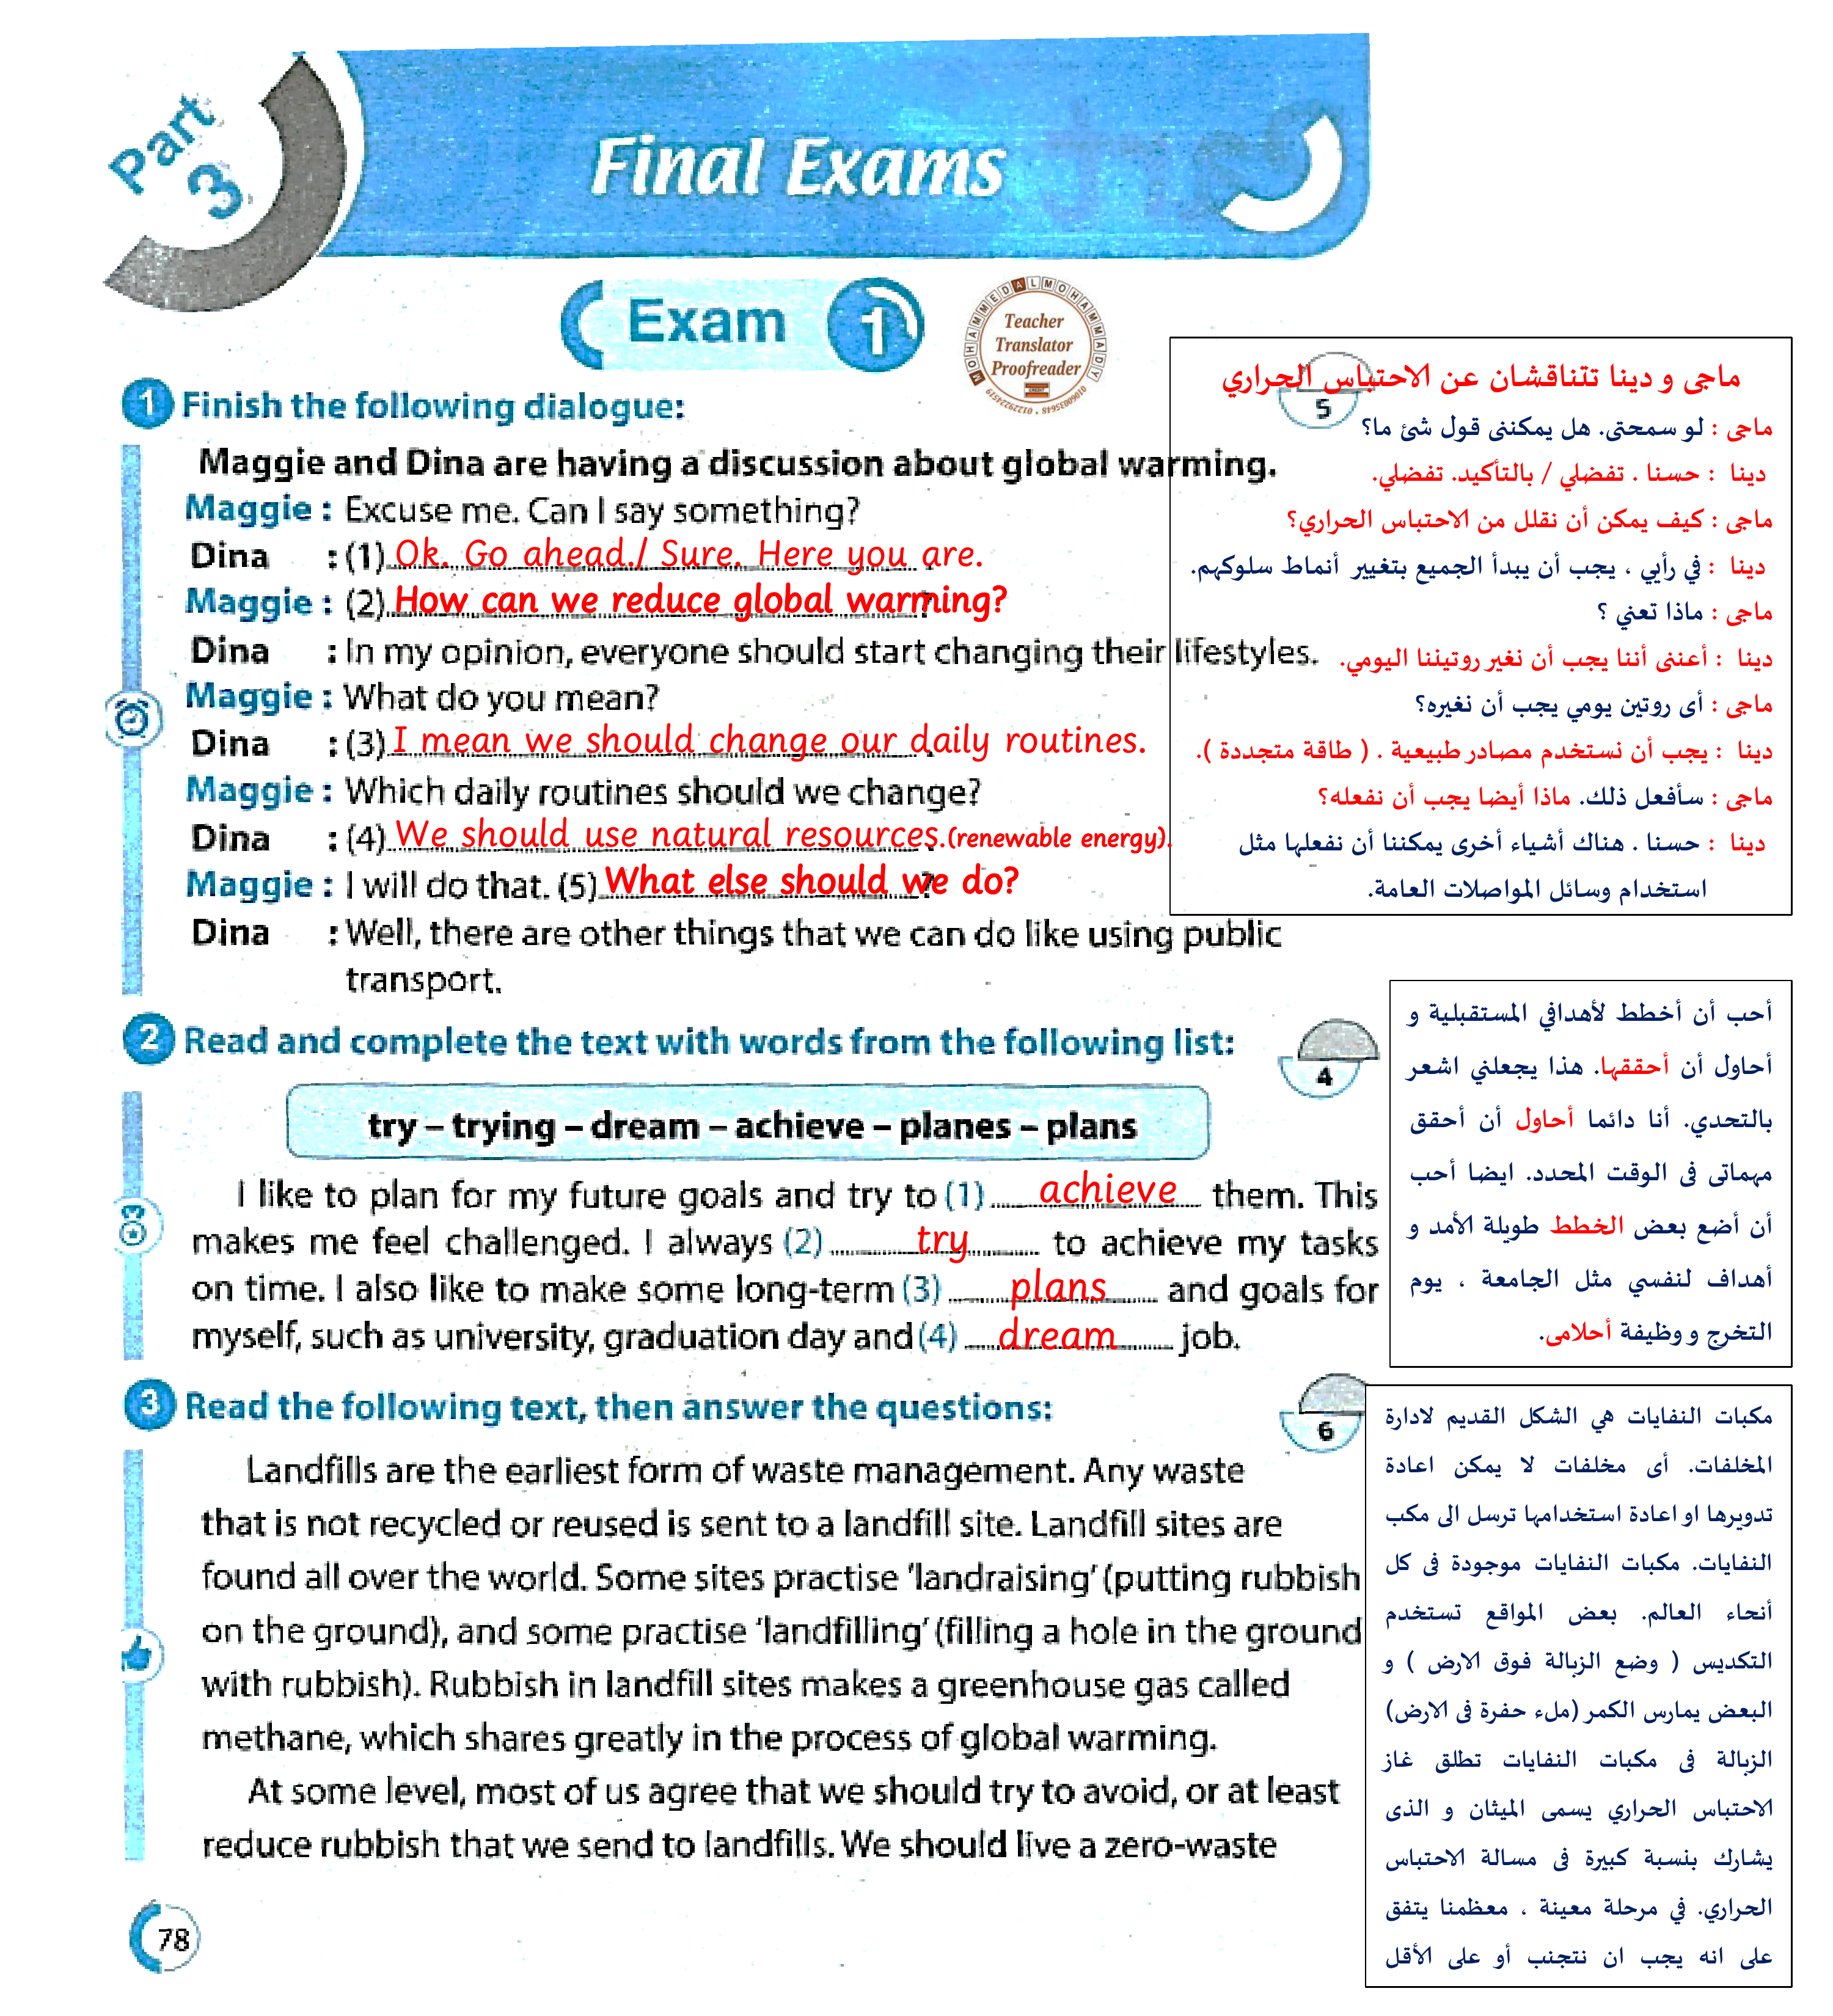 Part
3
Final Exams
Exam 1
MOHAMMED ALMOHAMMADY
Teacher
Translator
Proofreader
1 Finish the following dialogue:
5
Maggie and Dina are having a discussion about global warming.
Maggie : Excuse me. Can I say something?
Dina : (1) Ok. Go ahead./ Sure. Here you are.
Maggie : (2) How can we reduce global warming?
Dina : In my opinion, everyone should start changing their lifestyles.
Maggie : What do you mean?
Dina : (3) I mean we should change our daily routines.
Maggie : Which daily routines should we change?
Dina : (4) We should use natural resources.(renewable energy).
Maggie : I will do that. (5) What else should we do?
Dina : Well, there are other things that we can do like using public
transport.
ماجى و دينا تتناقشان عن الاحتباس الحراري
ماجى : لو سمحتى. هل يمكننى قول شئ ما؟
دينا : حسنا . تفضلي / بالتأكيد. تفضلي.
ماجى : كيف يمكن أن نقلل من الاحتباس الحراري؟
دينا : في رأيي ، يجب أن يبدأ الجميع بتغيير أنماط سلوكهم.
ماجى : ماذا تعني ؟
دينا : أعنى أننا يجب أن نغير روتيننا اليومي.
ماجى : أى روتين يومي يجب أن نغيره؟
دينا : يجب أن نستخدم مصادر طبيعية . ( طاقة متجددة ).
ماجى : سأفعل ذلك. ماذا أيضا يجب أن نفعله؟
دينا : حسنا . هناك أشياء أخرى يمكننا أن نفعلها مثل
استخدام وسائل المواصلات العامة.
2 Read and complete the text with words from the following list:
4
try – trying – dream – achieve – planes – plans
I like to plan for my future goals and try to (1) achieve them. This
makes me feel challenged. I always (2) try to achieve my tasks
on time. I also like to make some long-term (3) plans and goals for
myself, such as university, graduation day and (4) dream job.
أحب أن أخطط لأهدافي المستقبلية و
أحاول أن أحققها. هذا يجعلني اشعر
بالتحدي. أنا دائما أحاول أن أحقق
مهماتى فى الوقت المحدد. ايضا أحب
أن أضع بعض الخطط طويلة الأمد و
أهداف لنفسي مثل الجامعة ، يوم
التخرج و وظيفة أحلامى.
3 Read the following text, then answer the questions:
6
Landfills are the earliest form of waste management. Any waste
that is not recycled or reused is sent to a landfill site. Landfill sites are
found all over the world. Some sites practise 'landraising' (putting rubbish
on the ground), and some practise 'landfilling' (filling a hole in the ground
with rubbish). Rubbish in landfill sites makes a greenhouse gas called
methane, which shares greatly in the process of global warming.
At some level, most of us agree that we should try to avoid, or at least
reduce rubbish that we send to landfills. We should live a zero-waste
مكبات النفايات هي الشكل القديم لادارة
المخلفات. أى مخلفات لا يمكن اعادة
تدويرها او اعادة استخدامها ترسل الى مكب
النفايات. مكبات النفايات موجودة فى كل
أنحاء العالم. بعض المواقع تستخدم
التكديس ( وضع الزبالة فوق الارض ) و
البعض يمارس الكمر (ملء حفرة فى الارض)
الزبالة فى مكبات النفايات تطلق غاز
الاحتباس الحراري يسمى الميثان و الذى
يشارك بنسبة كبيرة فى مسالة الاحتباس
الحراري. في مرحلة معينة ، معظمنا يتفق
على انه يجب ان نتجنب أو على الأقل
78